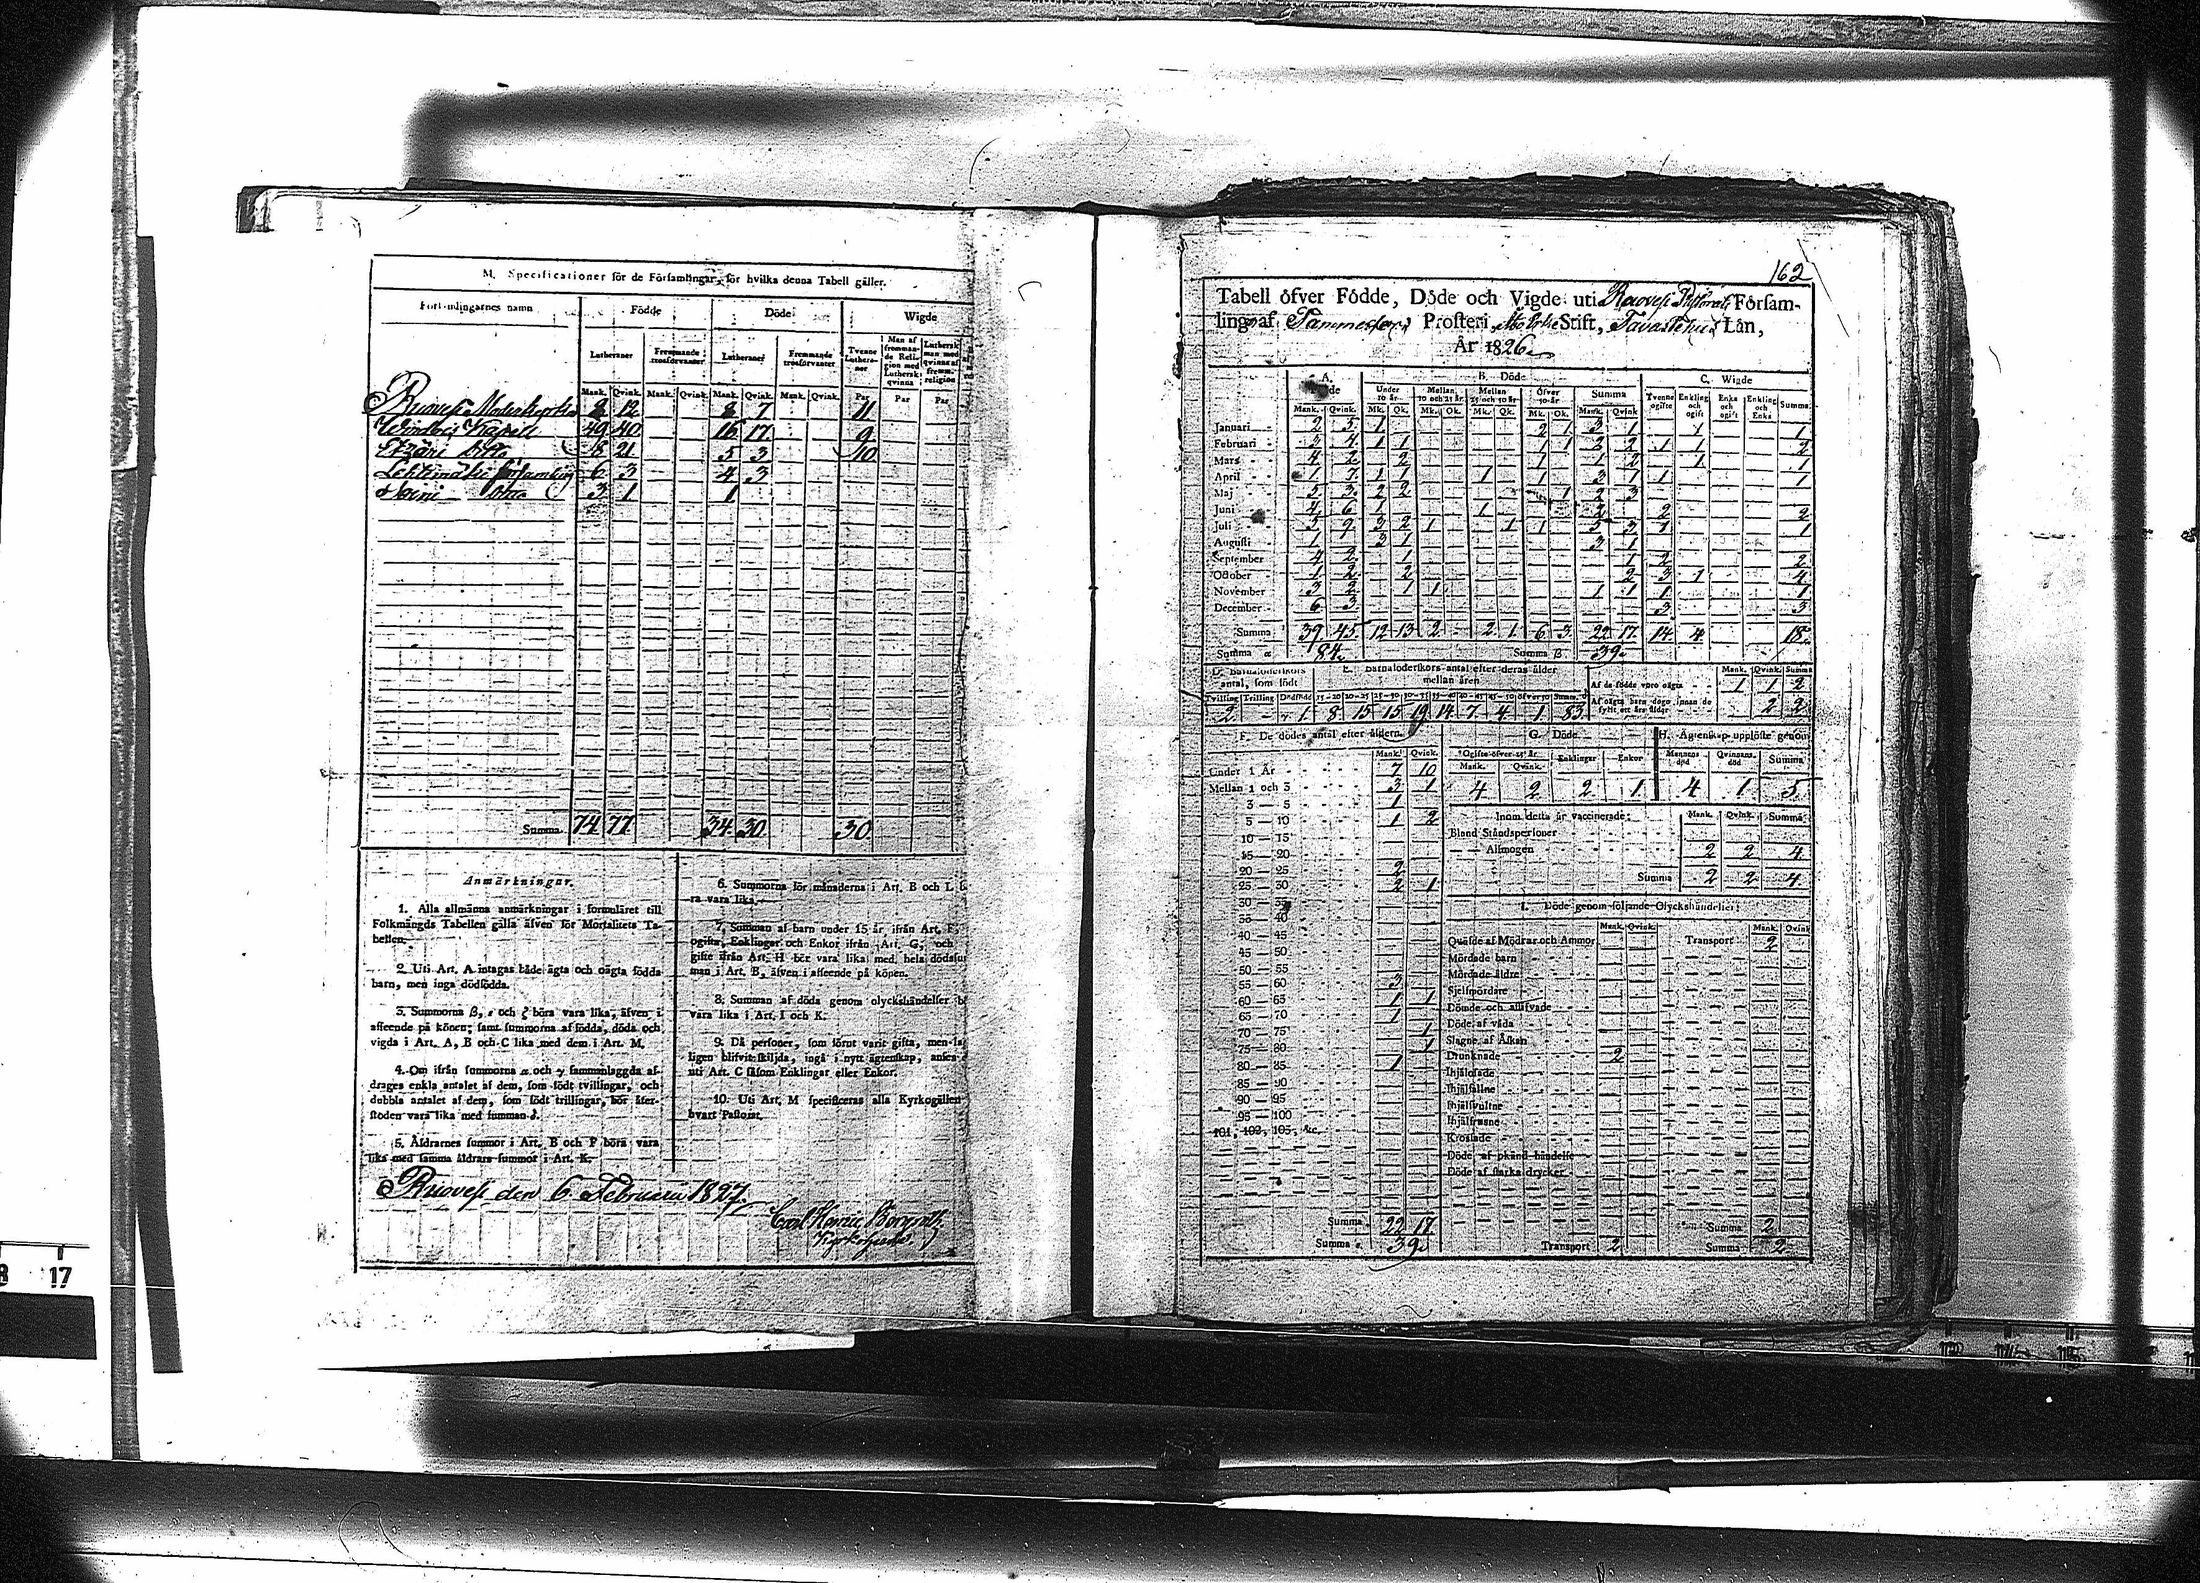 M. Specificationer för de Församlingar, för hvilka denna Tabell gäller.
Församlingarnes namn Födde Döde Wigde
Lutheraner Fremmande trosförvanter Lutheraner Fremmande trosförvanter Tvenne Lutheraner Man af fremmande Religion med Luthersk qvinna Luthersk man med qvinna af fremm. religion
Mank. Qvink. Mank. Qvink. Mank. Qvink. Mank. Qvink. Par Par Par
Ruovesi Moderkyrka 8 12 8 7 11
Kapell 49 40 16 17 9
8 21 5 3 10
Församling 6 3 4 3
3 1 1
Summa 74 77 34 30 30
Anmärkningar.
1. Alla allmänna anmärkningar i formuläret till
Folkmängds Tabellen gälla äfven för Mortalitets Ta-
bellen.
2. Uti Art. A intagas både ägta och oägta födda
barn, men inga dödfödda.
3. Summorna β, ε och ζ böra vara lika, äfven i
afseende på könen; samt summorna af födda, döda och
vigda i Art. A, B och C lika med dem i Art. M.
4. Om ifrån summorna α och γ sammanlaggda af-
drages enkla antalet af dem, som födt tvillingar, och
dubbla antalet af dem, som födt trillingar, bör åter-
stoden vara lika med summan δ.
5. Åldrarnes summor i Art. B och F böra vara
lika med samma åldrars summor i Art. K.
6. Summorna för månaderna i Art. B och L bö-
ra vara lika.
7. Summan af barn under 15 år, ifrån Art. F,
ogifta, Enklingar och Enkor ifrån Art. G, och
gifte ifrån Art. H bör vara lika med hela dödssum
man i Art. B, äfven i afseende på könen.
8. Summan af döda genom olyckshändelser b
vara lika i Art. I och K.
9. Då personer, som förut varit gifta, men la
ligen blifvit skiljda, ingå i nytt ägtenskap, anses
uti Art. C såsom Enklingar eller Enkor.
10. Uti Art. M specificeras alla Kyrkogällen
hvart Pastorat.
Ruovesi den 6 Februari 1827.
Carl
162
Tabell öfver Födde, Döde och Vigde uti Ruovesi Pastorats Försam-
lingar af Tammerfors Prosteri, Åbo Stift, Tavastehus Län,
År 1826
A. Födde B. Döde C. Wigde
Under 10 år Mellan 10 och 25 år Mellan 25 och 50 år Öfver 50 år Summa Tvenne ogifte Enkling och ogift Enka och ogift Enkling och Enka Summa
Mank. Qvink. Mk. Qk. Mk. Qk. Mk. Qk. Mk. Qk. Mank. Qvink.
Januari 2 5 1 2 1 3 1 1 1
Februari 3 4 1 1 1 2 2 1 1 2
Mars 4 2 2 1 1 2 1 1
April 1 7 1 1 1 1 3 1 1 1
Maj 5 3 2 2 1 2 3
Juni 4 6 1 1 2 2 2
Juli 5 9 3 2 1 1 1 5 3 1 1
Augusti 1 3 1 3 1
September 4 2 1 1 2 2
October 1 2 2 2 3 1 4
November 3 2 1 1 1 1 1 1
December 6 3 3 3
Summa 39 45 12 13 2 2 1 6 3 22 17 14 4 18
Summa α 84 Summa β 39
D. Barnaföderskors antal, som födt E. Barnaföderskors antal efter deras ålder mellan åren
Mank. Qvink. Summa
Tvilling Trilling Dödfödde 15-20 20-25 25-30 30-35 35-40 40-45 45-50 öfver 50 Summa
Af de födde voro oägta 1 1 2
Af oägta barn dogo innan de fyllt ett års ålder 2 2
2 1 8 15 15 19 14 7 4 1 83
F. De dödes antal efter åldern. G. Döde H. Ägtenskap upplöste genom
Mank. Qvink. Ogifte öfver 15 år Enklingar Enkor Mannens död Qvinnans död Summa
Mank. Qvink.
4 2 2 1 4 1 5
Under 1 År 7 10
Mellan 1 och 3 3 1
3 — 5 1
5 — 10 1 2
10 — 15
15 — 20
20 — 25 2
25 — 30 2 1
30 — 35
35 — 40
40 — 45
45 — 50
50 — 55
55 — 60 3
60 — 65 1 1
65 — 70 1
70 — 75 1
75 — 80 1
80 — 85 1
85 — 90
90 — 95
95 — 100
101, 102, 103, &c.
Summa 22 17
Summa ε. 39
Inom detta år vaccinerade: Mank. Qvink. Summa
Bland Ståndspersoner
— — Allmogen 2 2 4
Summa 2 2 4
I. Döde genom följande Olyckshändelser:
Mank. Qvink. Mank. Qvink
Quäfde af Mödrar och Ammor Transport 2
Mördade barn
Mördade äldre
Sjelfmördare
Dömde och aflifvade
Döde af våda
Slagne af Åskan
Drunknade 2
Ihjälosade
Ihjälfallne
Ihjälsvultne
Ihjälfrusne
Krossade
Döde af okänd händelse
Döde af starka drycker
Summa 2
Transport 2 Summa 2
17